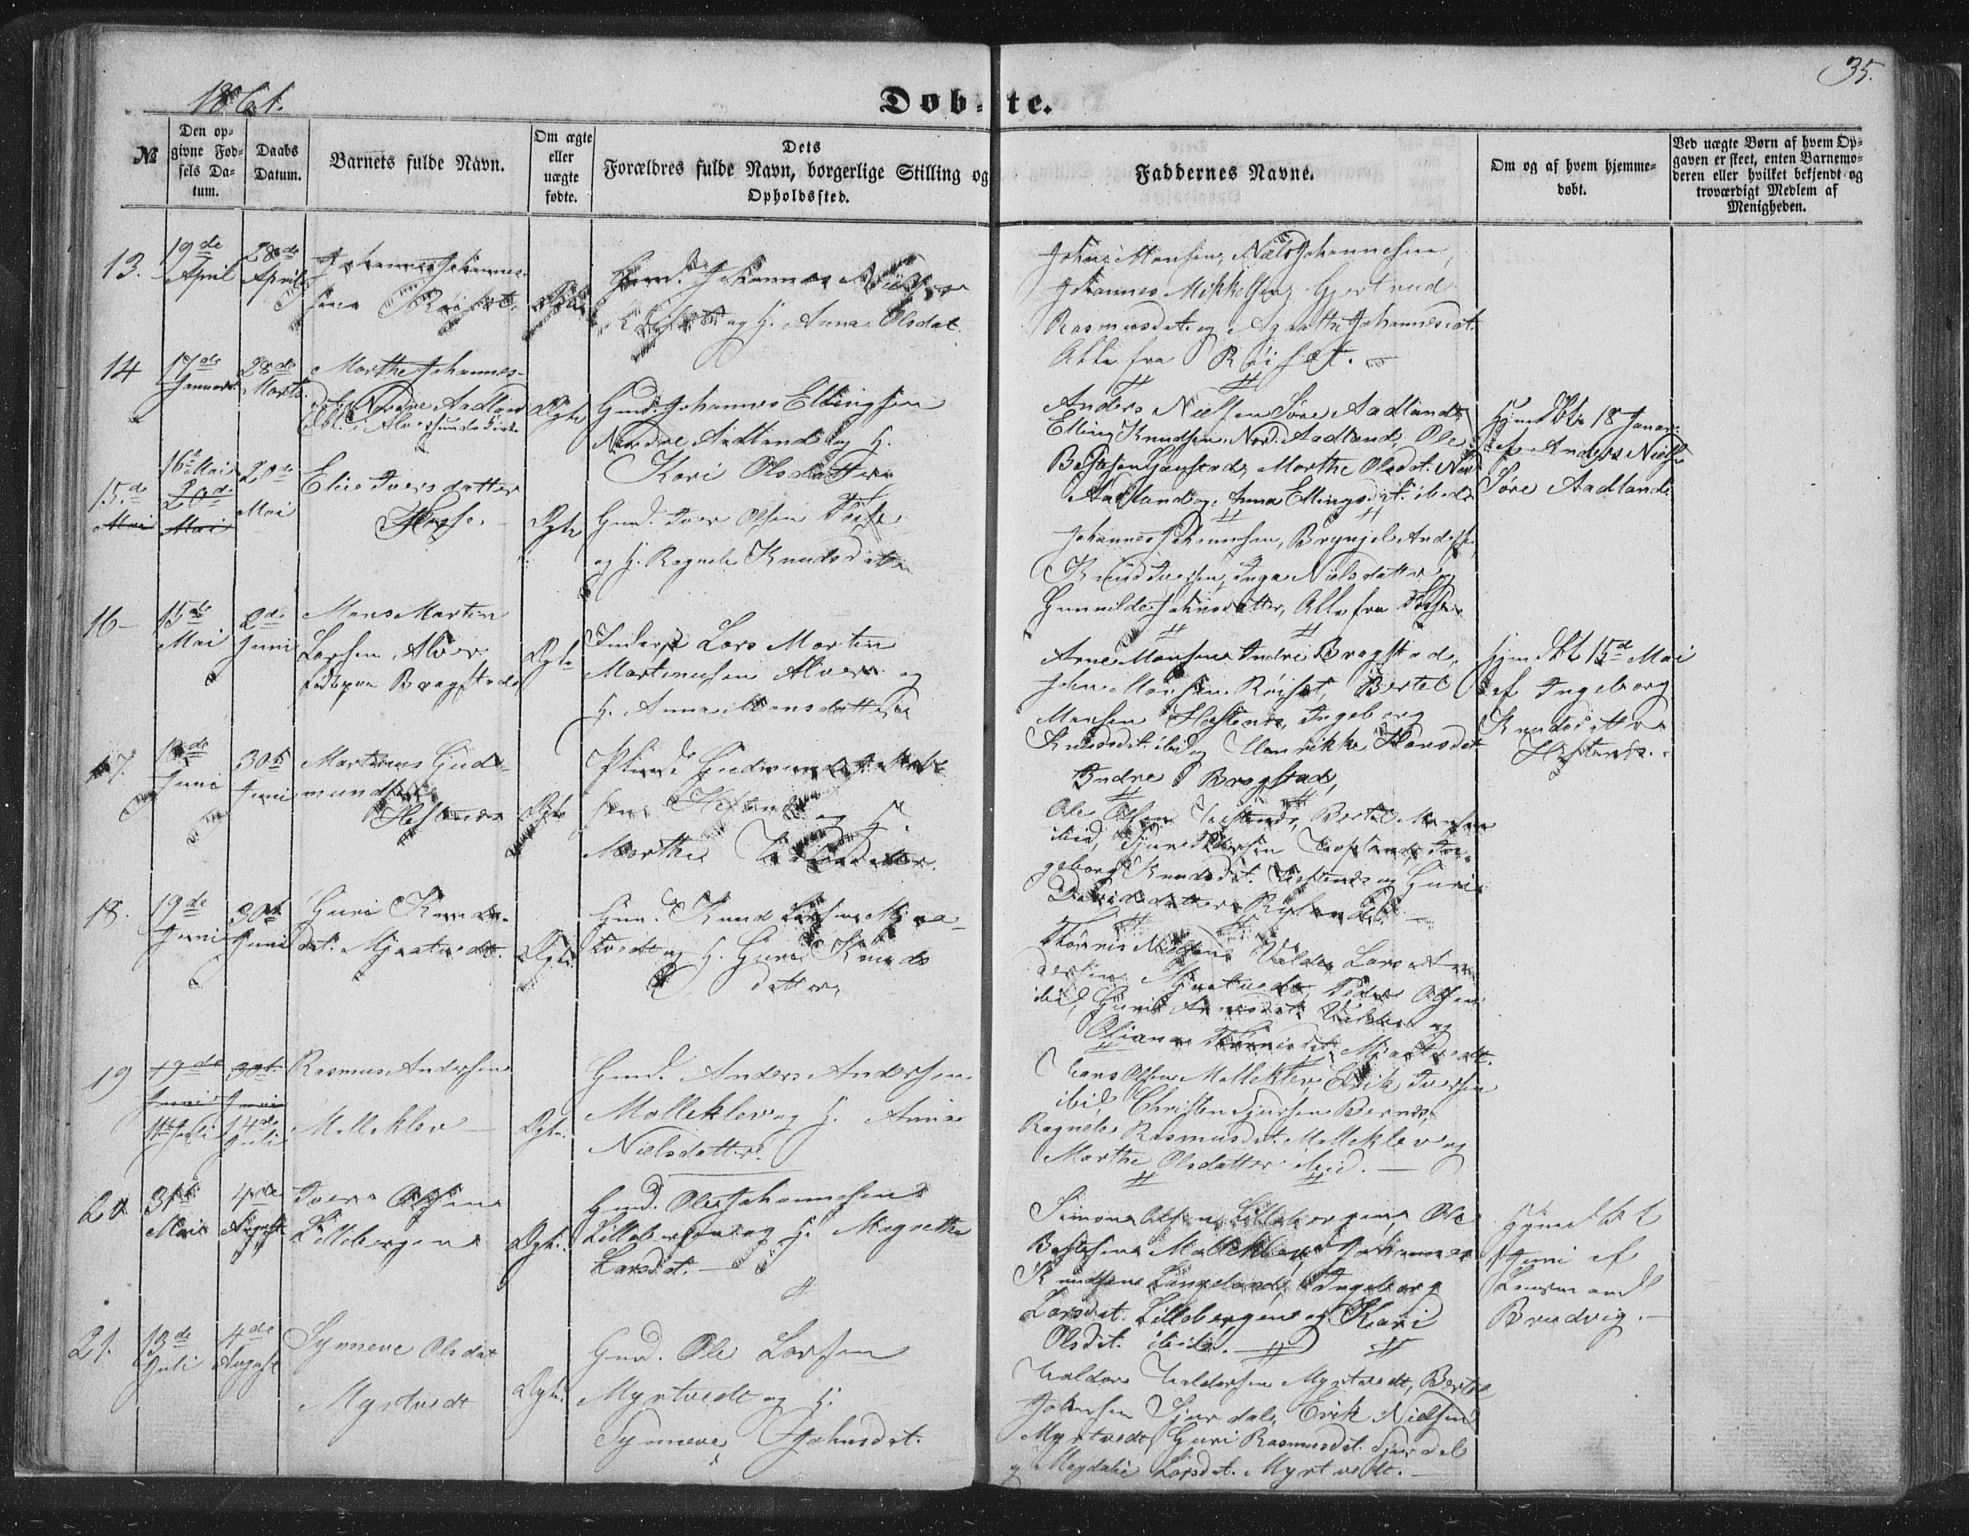 1861.
Døbte.
35.
№
Den opgivne Fødsels Datum.
Daabs Datum.
Barnets fulde Navn.
Om ægte eller uægte fødte.
Dets Forældres fulde Navn, borgerlige Stilling og Opholdssted.
Faddernes Navne.
Om og af hvem hjemmedøbt.
Ved uægte Børn af hvem Opgaven er skeet, enten Barnemoderen eller hvilket bekjendt og troværdigt Medlem af Menigheden.
13.
19de April
28de April
Johannes Johannessen
Ægte
Gmd. Johannes
og H. Anna Olsdat.
Johannes Mikkelsen, Gjertrud
Rasmusdat. og Agathe Johannesdat.
Alle fra Röiset.
14
17de Januar
28de Marts
Marthe Johannes-
dat. Nordre Aadland
Ægte
Gmd. Johannes Ellingsen
Nordre Aadland og H.
Kari Olsdatter
Anders Nielsen Søre Aadland,
Elling Knudsen Nord. Aadland, Ole
Marthe Olsdat. Nord
Aadland og Anna Ellingsdat. ibid.
Hjmdbt. 18 Januar
af Anders Niels.
Søre Aadland.
15de
Mai
16de Mai
20de
Mai
20de Mai
Elie Iversdatter
Ægte
Gmd. Iver Olsen
og H. Ragnele Knudsdatter
Johannes Johannesen, Brynjel Anders.
Knud Iversen, Inga Nielsdatter
Gunnilde Johnsdatter, Alle fra
16
15de Mai
2de Juni
Mons Martin
Larsen Alver
Bragstad
Ægte
Inderst Lars Martin
Martinusen Alver og
H. Anna Monsdatter
Arne Monsen Indre Bragstad,
John Monsen Röiset, Bertel
Monsen Hestenes, Ingeborg
Knudsdat. ibid. og Henrikke Hansdat.
Indre Bragstad,
Hjmdbt 15de Mai
af Ingeborg
Knudsdatter
Hestenes.
17.
Juni
30te Juni
Martinus Gud-
mundsen
Hestenes
Ægte
Gudmund
og H.
Marthe
Ole Olsen Hestenes, Bertel Monsen
ibid,
geborg Knudsdat. Hestenes og Guri
Davidsdatter
18.
19de Juni
30te Juni
Guri Knuds-
dat. Mjaatvedt.
Ægte.
Gmd. Knud Larsen Mjaa-
tvedt og H. Guri Knuds
datter
Tönnis Nielsen
Mjaatvedt, Peder Olsen
ibid,
Oliana Tönnisdat. Mjaatvedt.
19
19de Juni
30te Juni
11te Juli
14de Juli
Rasmus Andersen
Molleklev
Ægte.
Gmd. Anders Andersen
Molleklev og H. Anna
Nielsdatter.
Hans Olsen Molleklev, Erik Iversen
ibid, Christen Sjursen Bernes,
Ragnele Rasmusdat. Molleklev og
Marthe Olsdatter ibid.
20
31te Mai
4de August
Iver Olsen
Lilleberger
Ægte.
Gmd. Ole Johannesen
Lillebergen og H. Magrethe
Larsdat.
Simon Olsen Lillebergen, Ole
Molleklev, Johannes
Knudsen Langeland, Ingeborg
Larsdat. Lillebergen og Kari
Olsdat. ibid.
Hjmdbt
Juni af
Lensmand
Brudvig.
21.
13de Juli
4de August
Synneve Olsdat
Myrtvedt
Ægte.
Gmd. Ole Larsen
Myrtvedt og H.
Synneve Johnsdat.
Haldor Haldorsen Myrtvedt, Bertel
Johnsen Sjurdal, Erik Nielsen
Myrtvedt, Guri Rasmusdat. Sjurdal
og Magdali Larsdat. Myrtvedt.